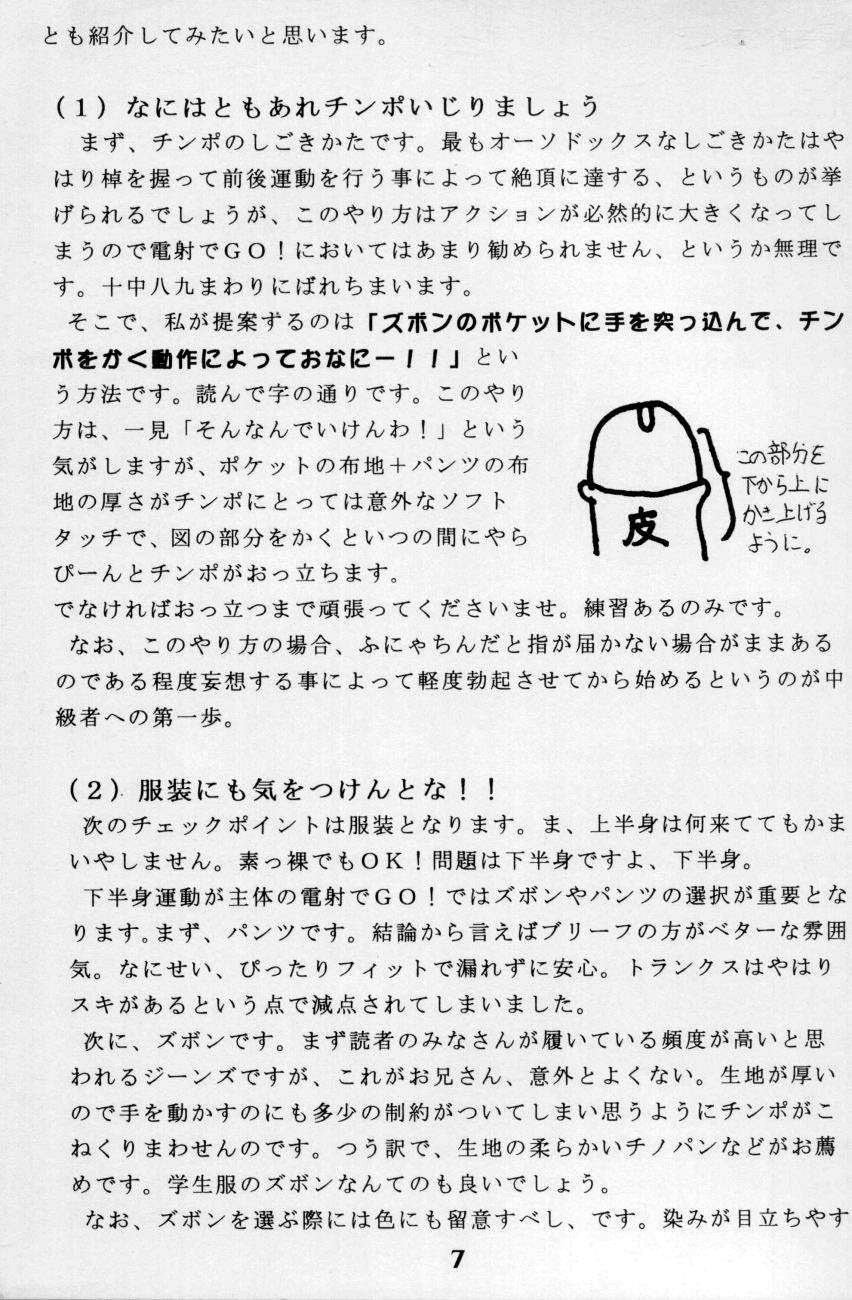 とも紹介してみたいと思います。
（１）なにはともあれチンポいじりましょう
まず、チンポのしごきかたです。最もオーソドックスなしごきかたはや
はり棹を握って前後運動を行う事によって絶頂に達する、というものが挙
げられるでしょうが、このやり方はアクションが必然的に大きくなってし
まうので電射でＧＯ！においてはあまり勧められません、というか無理で
す。十中八九まわりにばれちまいます。
そこで、私が提案するのは「ズボンのポケットに手を突っ込んで、チン
ポをかく動作によっておなにー！！」とい
う方法です。読んで字の通りです。このやり
方は、一見「そんなんでいけんわ！」という
気がしますが、ポケットの布地＋パンツの布
地の厚さがチンポにとっては意外なソフト
タッチで、図の部分をかくといつの間にやら
ぴーんとチンポがおっ立ちます。
皮
この部分を
下から上に
かき上げる
ように。
でなければおっ立つまで頑張ってくださいませ。練習あるのみです。
なお、このやり方の場合、ふにゃちんだと指が届かない場合がままある
のである程度妄想する事によって軽度勃起させてから始めるというのが中
級者への第一歩。
（２）服装にも気をつけんとな！！
次のチェックポイントは服装となります。ま、上半身は何来ててもかま
いやしません。素っ裸でもＯＫ！問題は下半身ですよ、下半身。
下半身運動が主体の電射でＧＯ！ではズボンやパンツの選択が重要とな
ります。まず、パンツです。結論から言えばブリーフの方がベターな雰囲
気。なにせい、ぴったりフィットで漏れずに安心。トランクスはやはり
スキがあるという点で減点されてしまいました。
次に、ズボンです。まず読者のみなさんが履いている頻度が高いと思
われるジーンズですが、これがお兄さん、意外とよくない。生地が厚い
ので手を動かすのにも多少の制約がついてしまい思うようにチンポがこ
ねくりまわせんのです。つう訳で、生地の柔らかいチノパンなどがお薦
めです。学生服のズボンなんてのも良いでしょう。
なお、ズボンを選ぶ際には色にも留意すべし、です。染みが目立ちやす
7